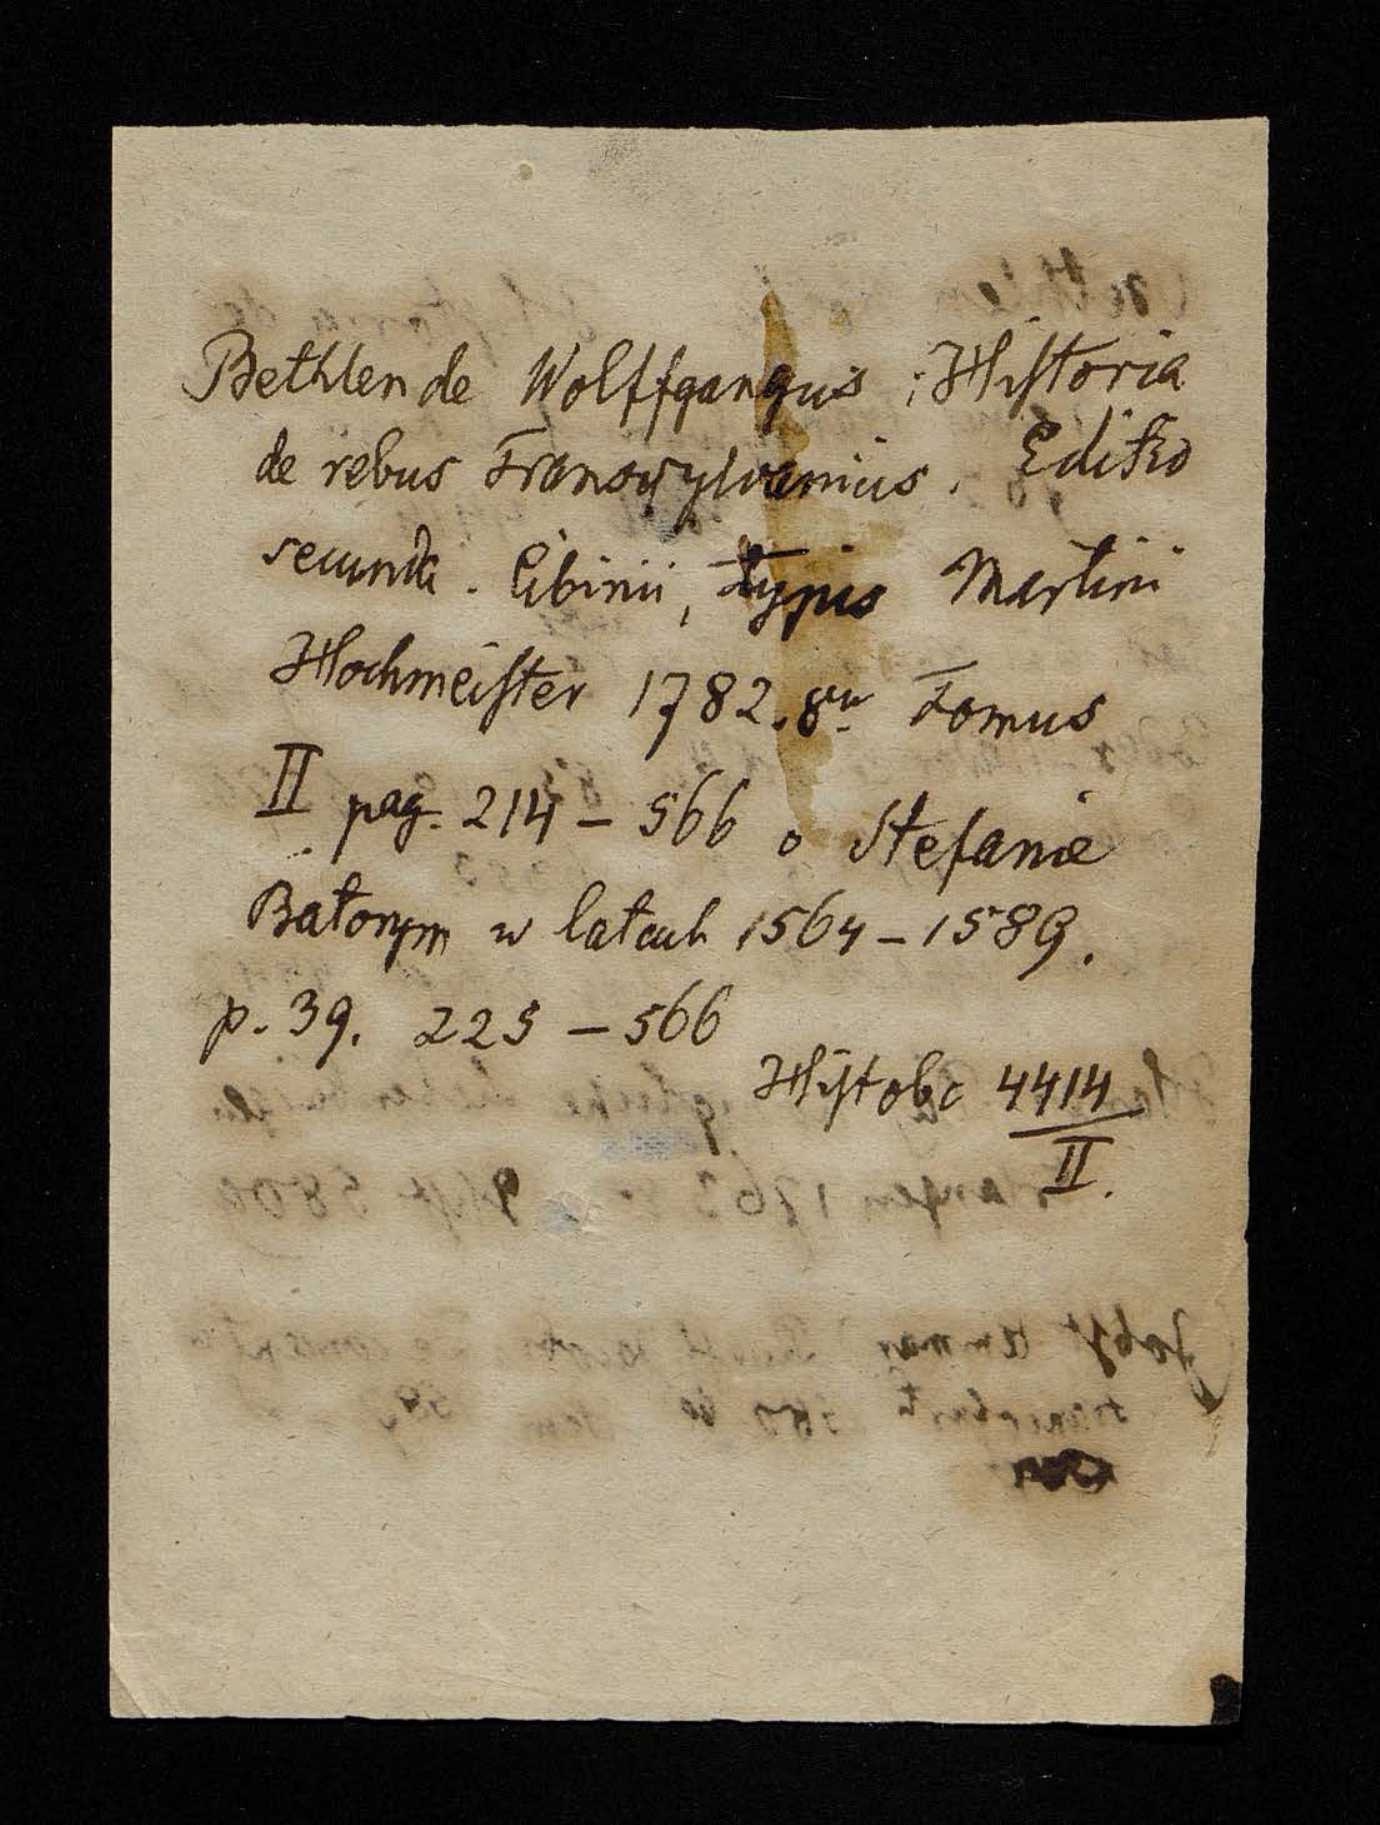 Bethlen de Wolffgangus : Historia
de rebus Transsylvanicis. Editio
secunda. Cibinii, typis Martini
Hochmeister 1782. 8vo Tomus
II pag. 214 – 566 o Stefanie
Batorym w latach 1564 – 1589.
p. 39. 225 – 566
Hist obc 4414
II.